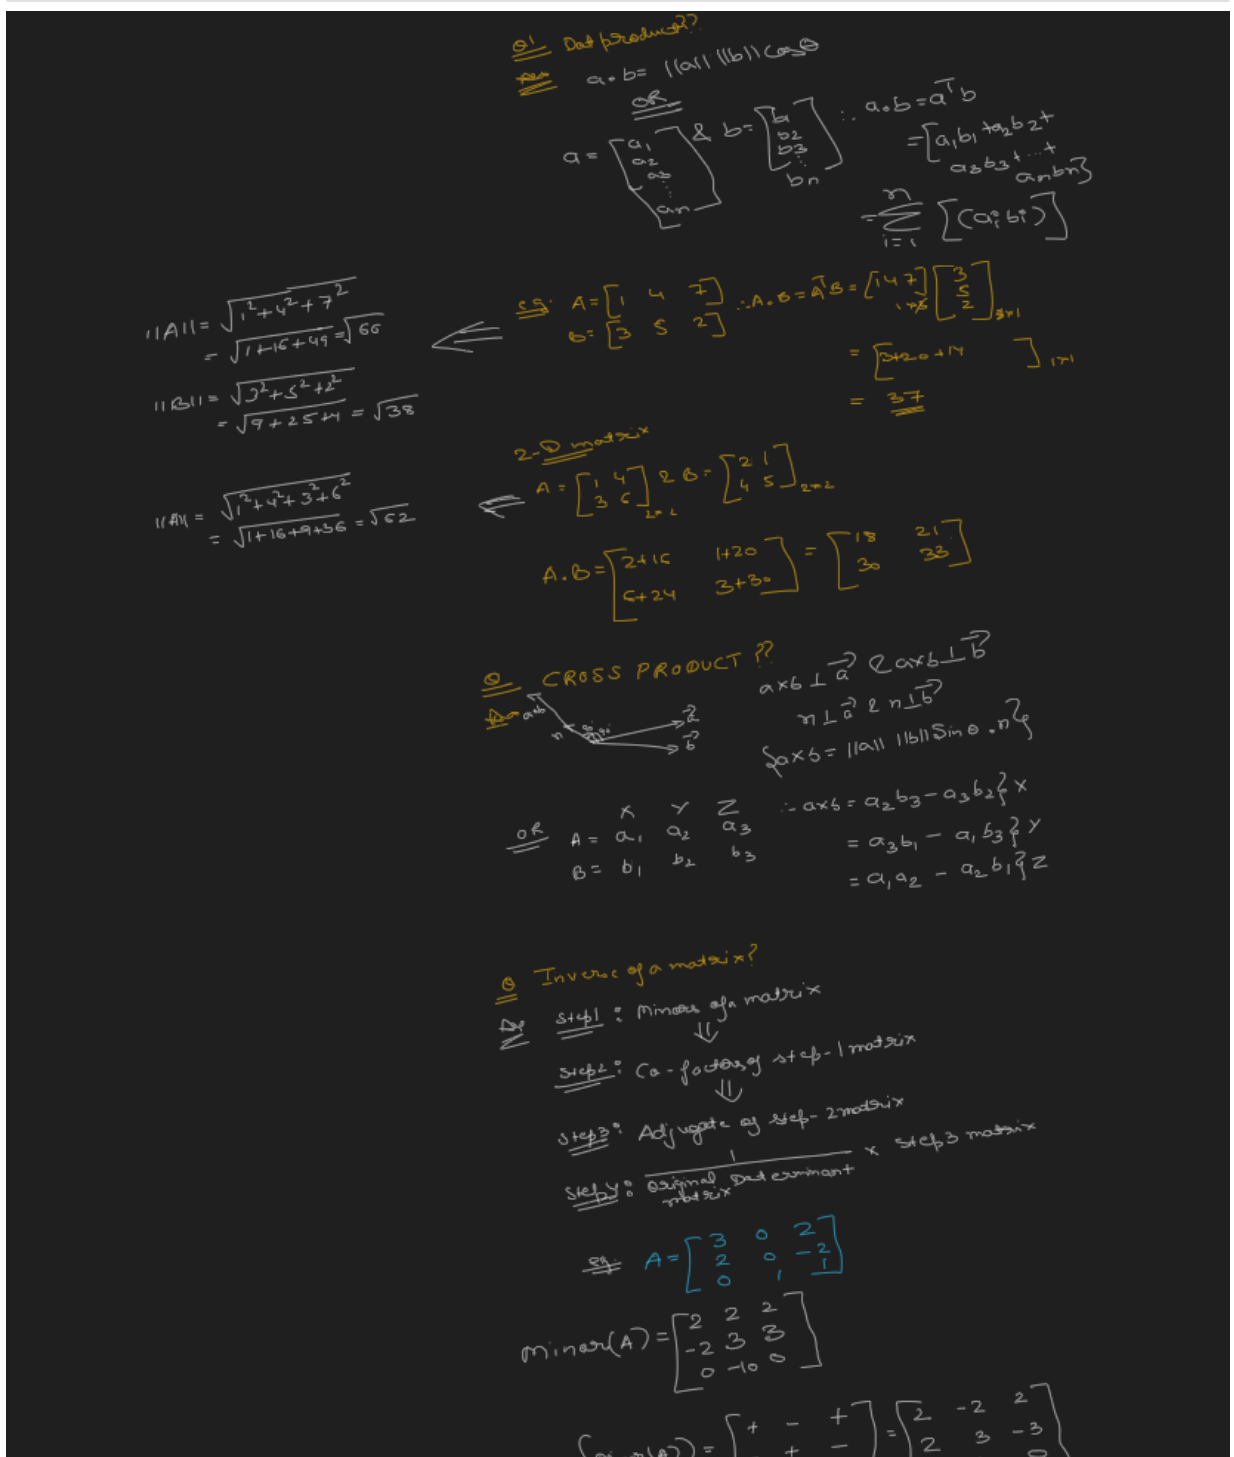 Q1 Dot product??
Ans a.b = ||a|| ||b|| cosθ
OR
a = [a1 a2 a3 ⋮ an] & b = [b b2 b3 ⋮ bn] ∴ a.b = aᵀb
= [a1b1 + a2b2 +
a3b3 + ... +
anbn}
= Σ i=1 n [(ai bi)]
eg: A = [1 4 7] ∴ A.B = AᵀB = [1 4 7] 1×3 [3 5 2] 3×1
B = [3 5 2]
= [3+20+14 ] 1×1
= 37
||A|| = √1² + 4² + 7²
= √1+16+49 = √66
||B|| = √3² + 5² + 2²
= √9+25+4 = √38
2-D matrix
A = [1 4 3 6] 2×2 & B = [2 1 4 5] 2×2
||A|| = √1² + 4² + 3² + 6²
= √1+16+9+36 = √62
A.B = [2+16 1+20 6+24 3+30] = [18 21 30 33]
Q CROSS PRODUCT??
Ans a×b n a⃗ b⃗
a×b ⊥ a⃗ & a×b ⊥ b⃗
n ⊥ a⃗ & n ⊥ b⃗
{a×b = ||a|| ||b|| Sinθ . n}
X Y Z
OR A = a1 a2 a3
B = b1 b2 b3
∴ a×b = a2b3 - a3b2} X
= a3b1 - a1b3} Y
= a1a2 - a2b1} Z
Q Inverse of a matrix?
Ans Step1: Minors of a matrix
⇓
Step2: Co-factors of step-1 matrix
⇓
Step3: Adjugate of step-2 matrix
Step4: 1 / original matrix Determinant × step3 matrix
eg. A = [3 0 2
2 0 -2
0 1 1]
Minor(A) = [2 2 2
-2 3 3
0 -10 0]
[+ - + = [2 -2 2
+ - 2 3 -3
0